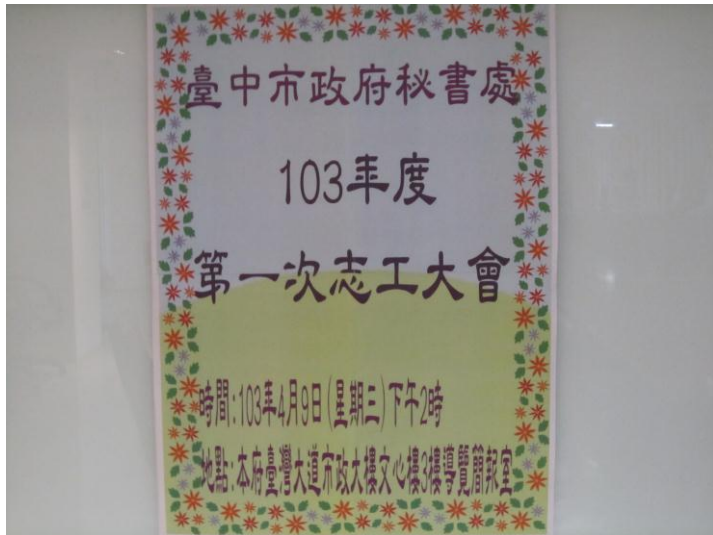 臺中市政府秘書處
103年度
第一次志工大會
時間:103年4月9日(星期三)下午2時
地點:本府臺灣大道市政大樓文心樓3樓導覽簡報室